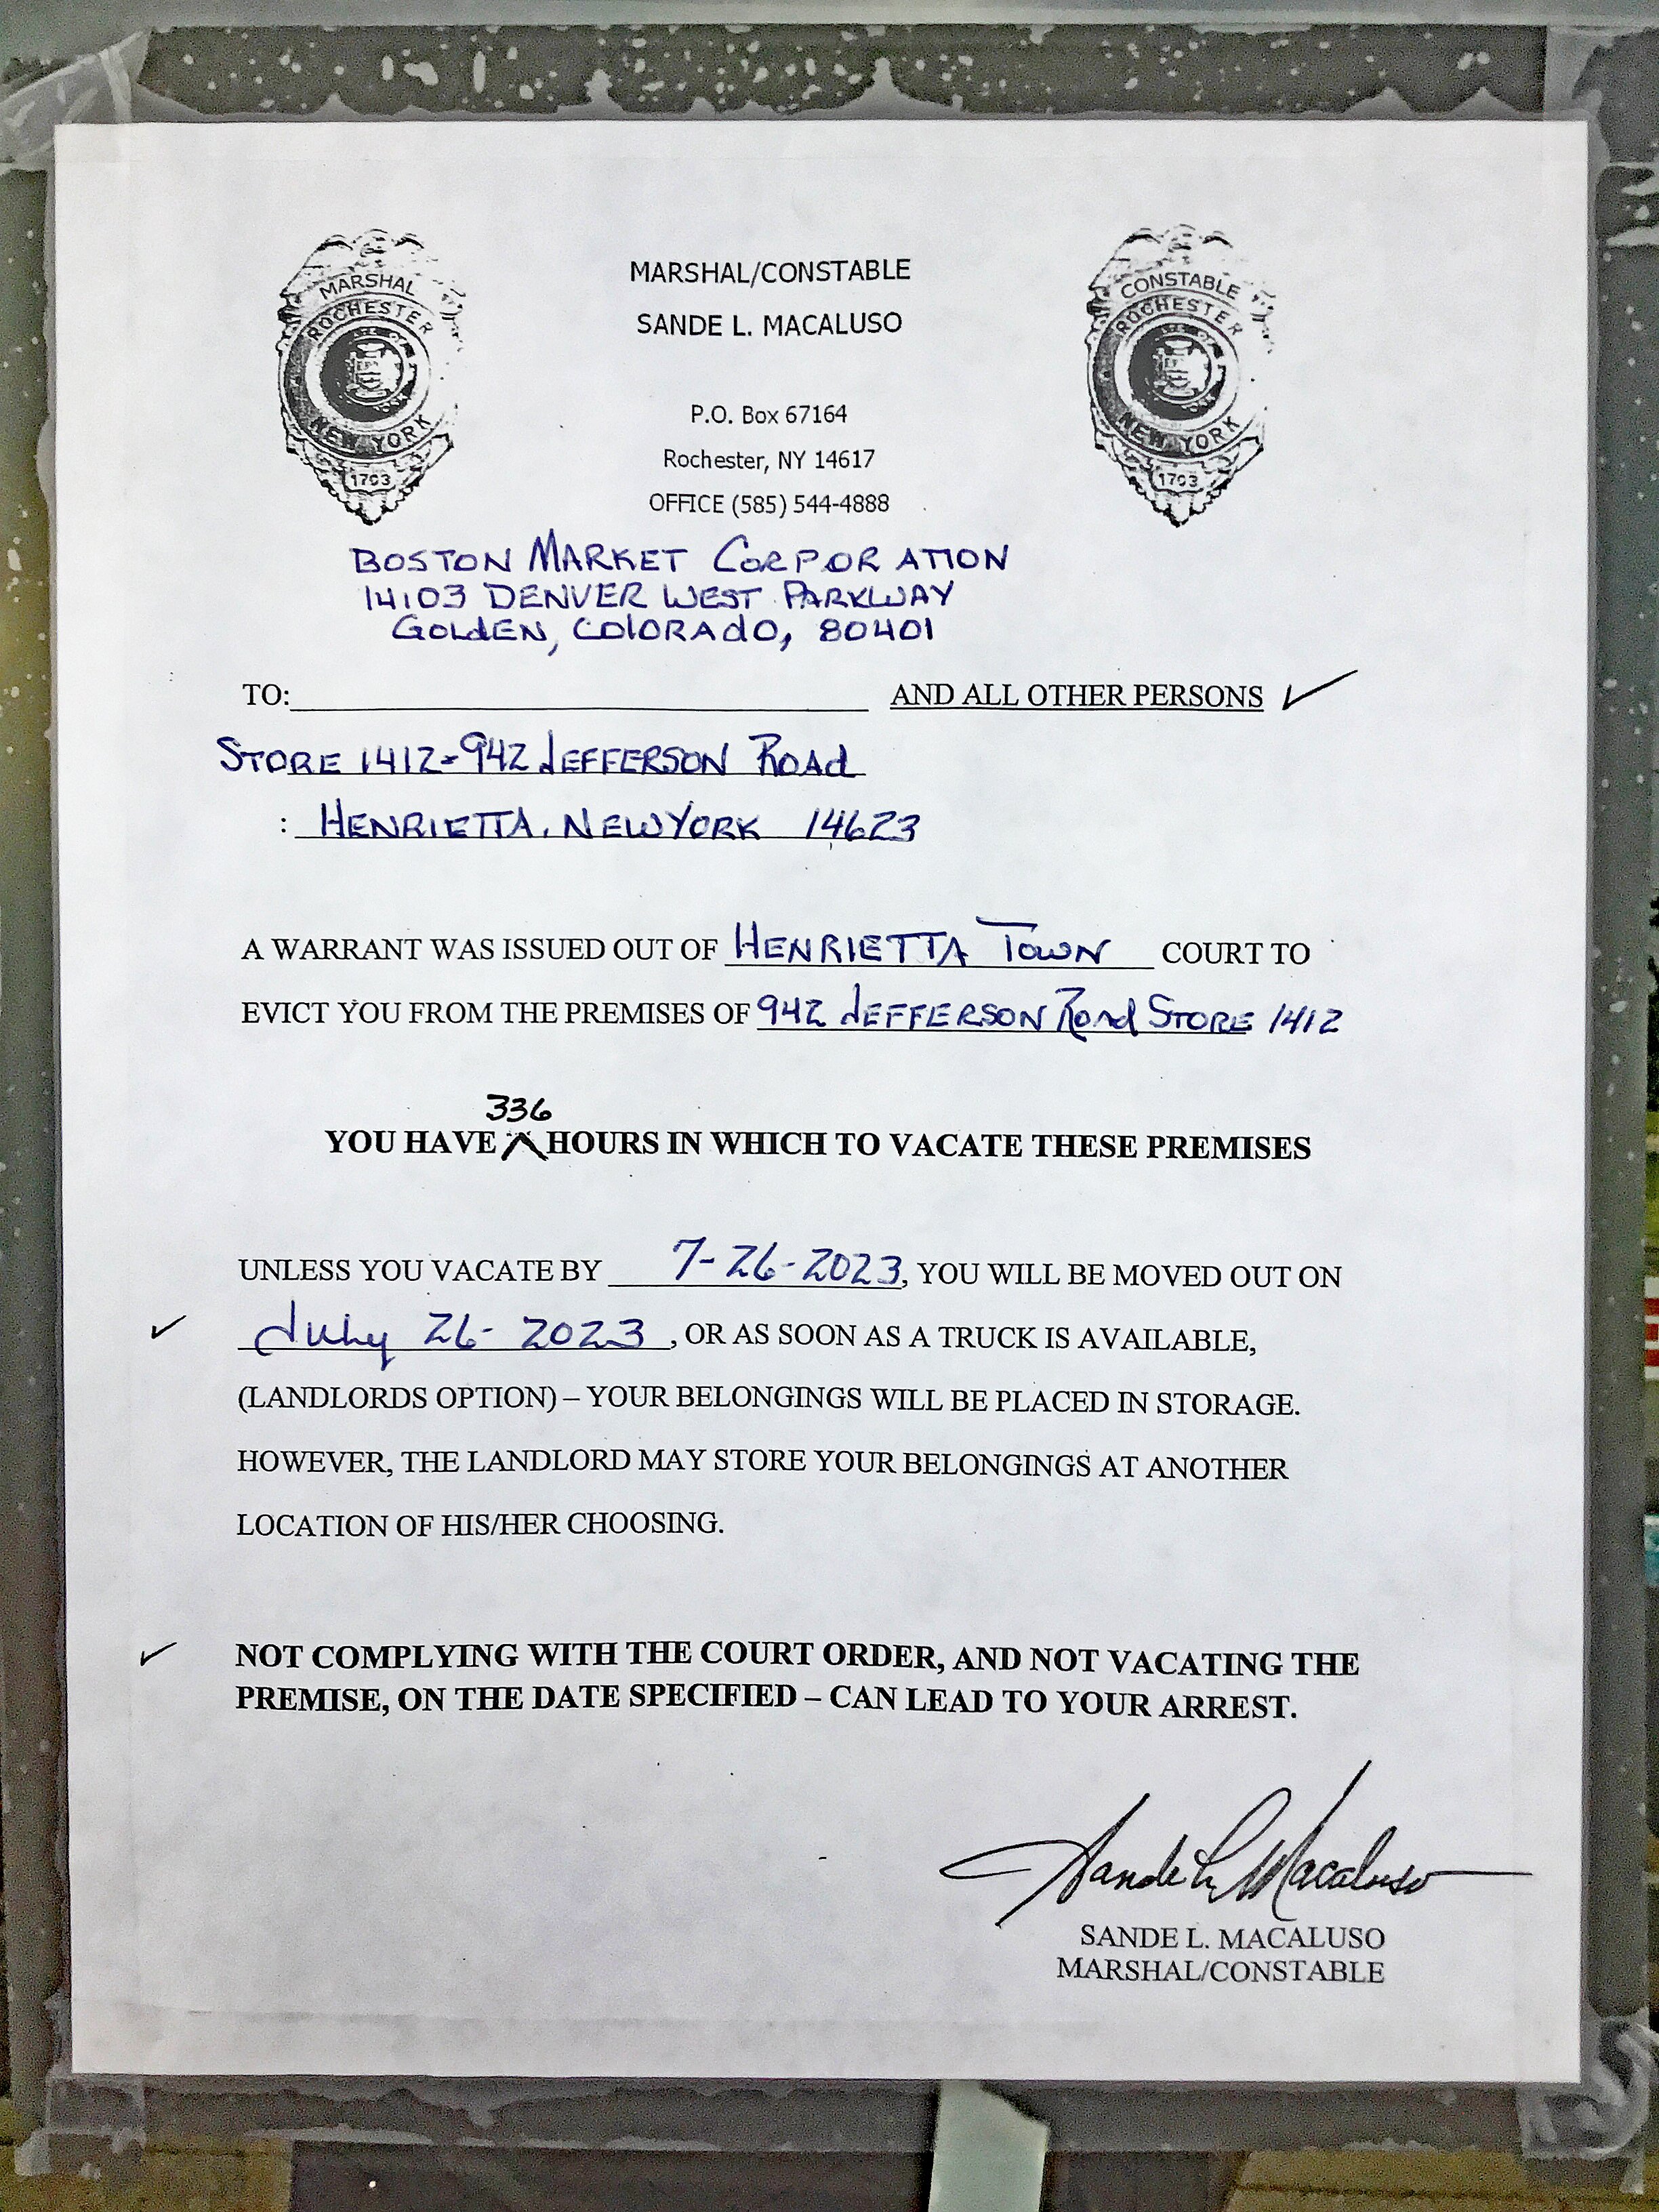 MARSHAL
ROCHESTER
NEW YORK
1703
MARSHAL/CONSTABLE
SANDE L. MACALUSO
P.O. Box 67164
Rochester, NY 14617
OFFICE (585) 544-4888
CONSTABLE
ROCHESTER
NEW YORK
1703
BOSTON MARKET CORPORATION
14103 DENVER WEST PARKWAY
GOLDEN, COLORADO, 80401
TO: AND ALL OTHER PERSONS ✓
STORE 1412-942 JEFFERSON ROAD
: HENRIETTA, NEW YORK 14623
A WARRANT WAS ISSUED OUT OF HENRIETTA TOWN COURT TO
EVICT YOU FROM THE PREMISES OF 942 JEFFERSON ROAD STORE 1412
336
YOU HAVE ^ HOURS IN WHICH TO VACATE THESE PREMISES
UNLESS YOU VACATE BY 7-26-2023, YOU WILL BE MOVED OUT ON
✓ July 26-2023, OR AS SOON AS A TRUCK IS AVAILABLE,
(LANDLORDS OPTION) – YOUR BELONGINGS WILL BE PLACED IN STORAGE.
HOWEVER, THE LANDLORD MAY STORE YOUR BELONGINGS AT ANOTHER
LOCATION OF HIS/HER CHOOSING.
✓ NOT COMPLYING WITH THE COURT ORDER, AND NOT VACATING THE
PREMISE, ON THE DATE SPECIFIED – CAN LEAD TO YOUR ARREST.
Sande L Macaluso
SANDE L. MACALUSO
MARSHAL/CONSTABLE